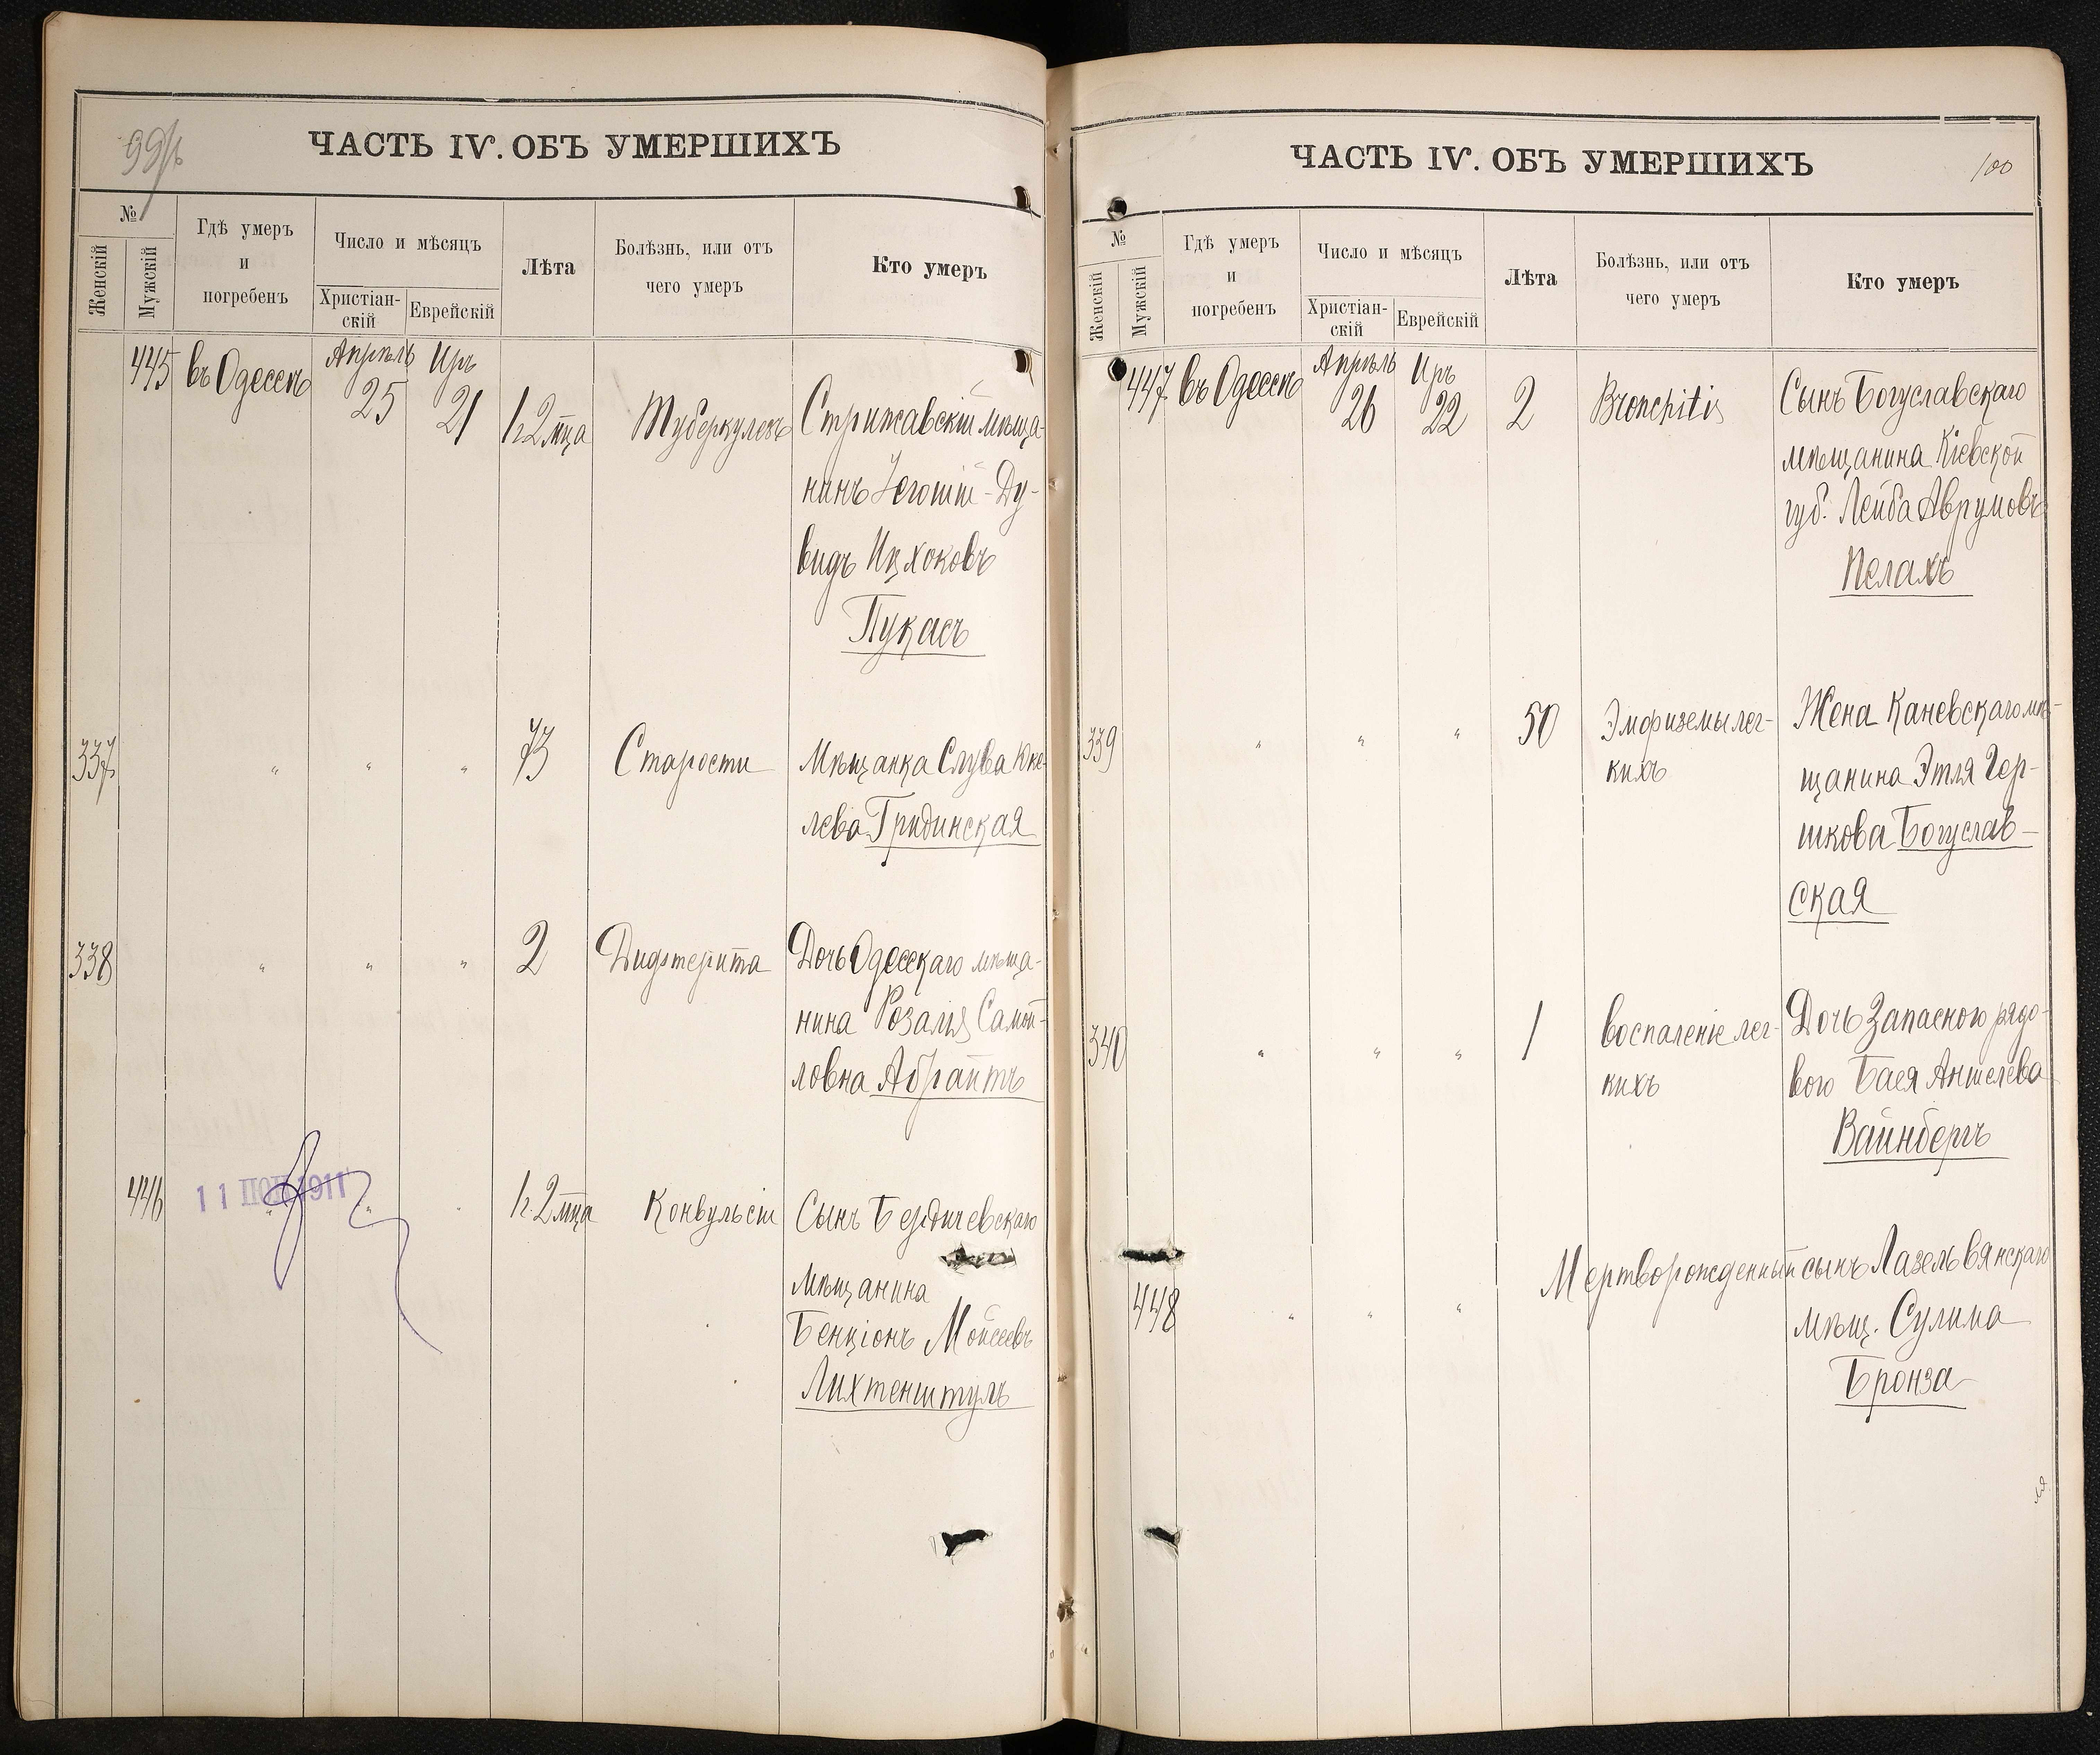 99/об
ЧАСТЬ IV. ОБЪ УМЕРШИХЪ
№
Женскій
Мужскій
Гдѣ умеръ
и
погребенъ
Число и мѣсяцъ
Христіан-
скій
Еврейскій
Лѣта
Болѣзнь, или отъ
чего умеръ
Кто умеръ
445 въ Одессѣ Апрѣль 25 Иръ 21 1 г. 2 мца Туберкулезъ Стрижавскій мѣща-
нинъ Іегошіи-Ду-
видъ Ицхоковъ
Пукасъ
337 " " " 73 Старости Мѣщанка Слува Юке-
лева Гридинская
338 " " " 2 Дифтерита Дочь Одесскаго мѣща-
нина Розалія Самой-
ловна Абрайтъ
446 " " " 1 г. 2 мца Конвульсіи Сынъ Бердичевскаго
мѣщанина
Бенціонъ Мойсеевъ
Лихтенштулъ
11 ІЮН 1911
100
ЧАСТЬ IV. ОБЪ УМЕРШИХЪ
№
Женскій
Мужскій
Гдѣ умеръ
и
погребенъ
Число и мѣсяцъ
Христіан-
скій
Еврейскій
Лѣта
Болѣзнь, или отъ
чего умеръ
Кто умеръ
447 въ Одессѣ Апрѣль 26 Иръ 22 2 Bronchitis Сынъ Богуславскаго
мѣщанина Кіевской
губ. Лейба Аврумовъ
Пелахъ
339 " " " 50 Эмфиземы лег- Жена Каневскаго мѣ-
кихъ щанина Этля Гер-
шкова Богуслав-
ская
340 " " " 1 воспаленіе лег- Дочь Запасного рядо-
кихъ вого Бася Аншелева
Вайнбергъ
448 " " " Мертворожденный сынъ Лазельвянскаго
мѣщ. Сулима
Бронза